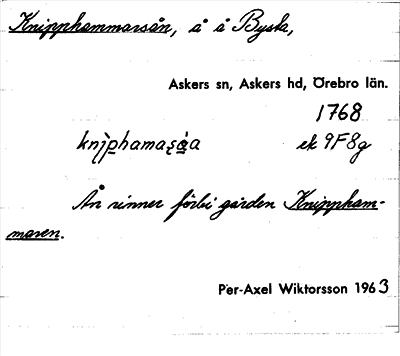 Knipphammarsån, å å Bysta,
Askers sn, Askers hd, Örebro län.
1768
knip̲hamaṣå̲a ek 9F8g
Ån rinner förbi gården Knippham-
maren.
Per-Axel Wiktorsson 1963